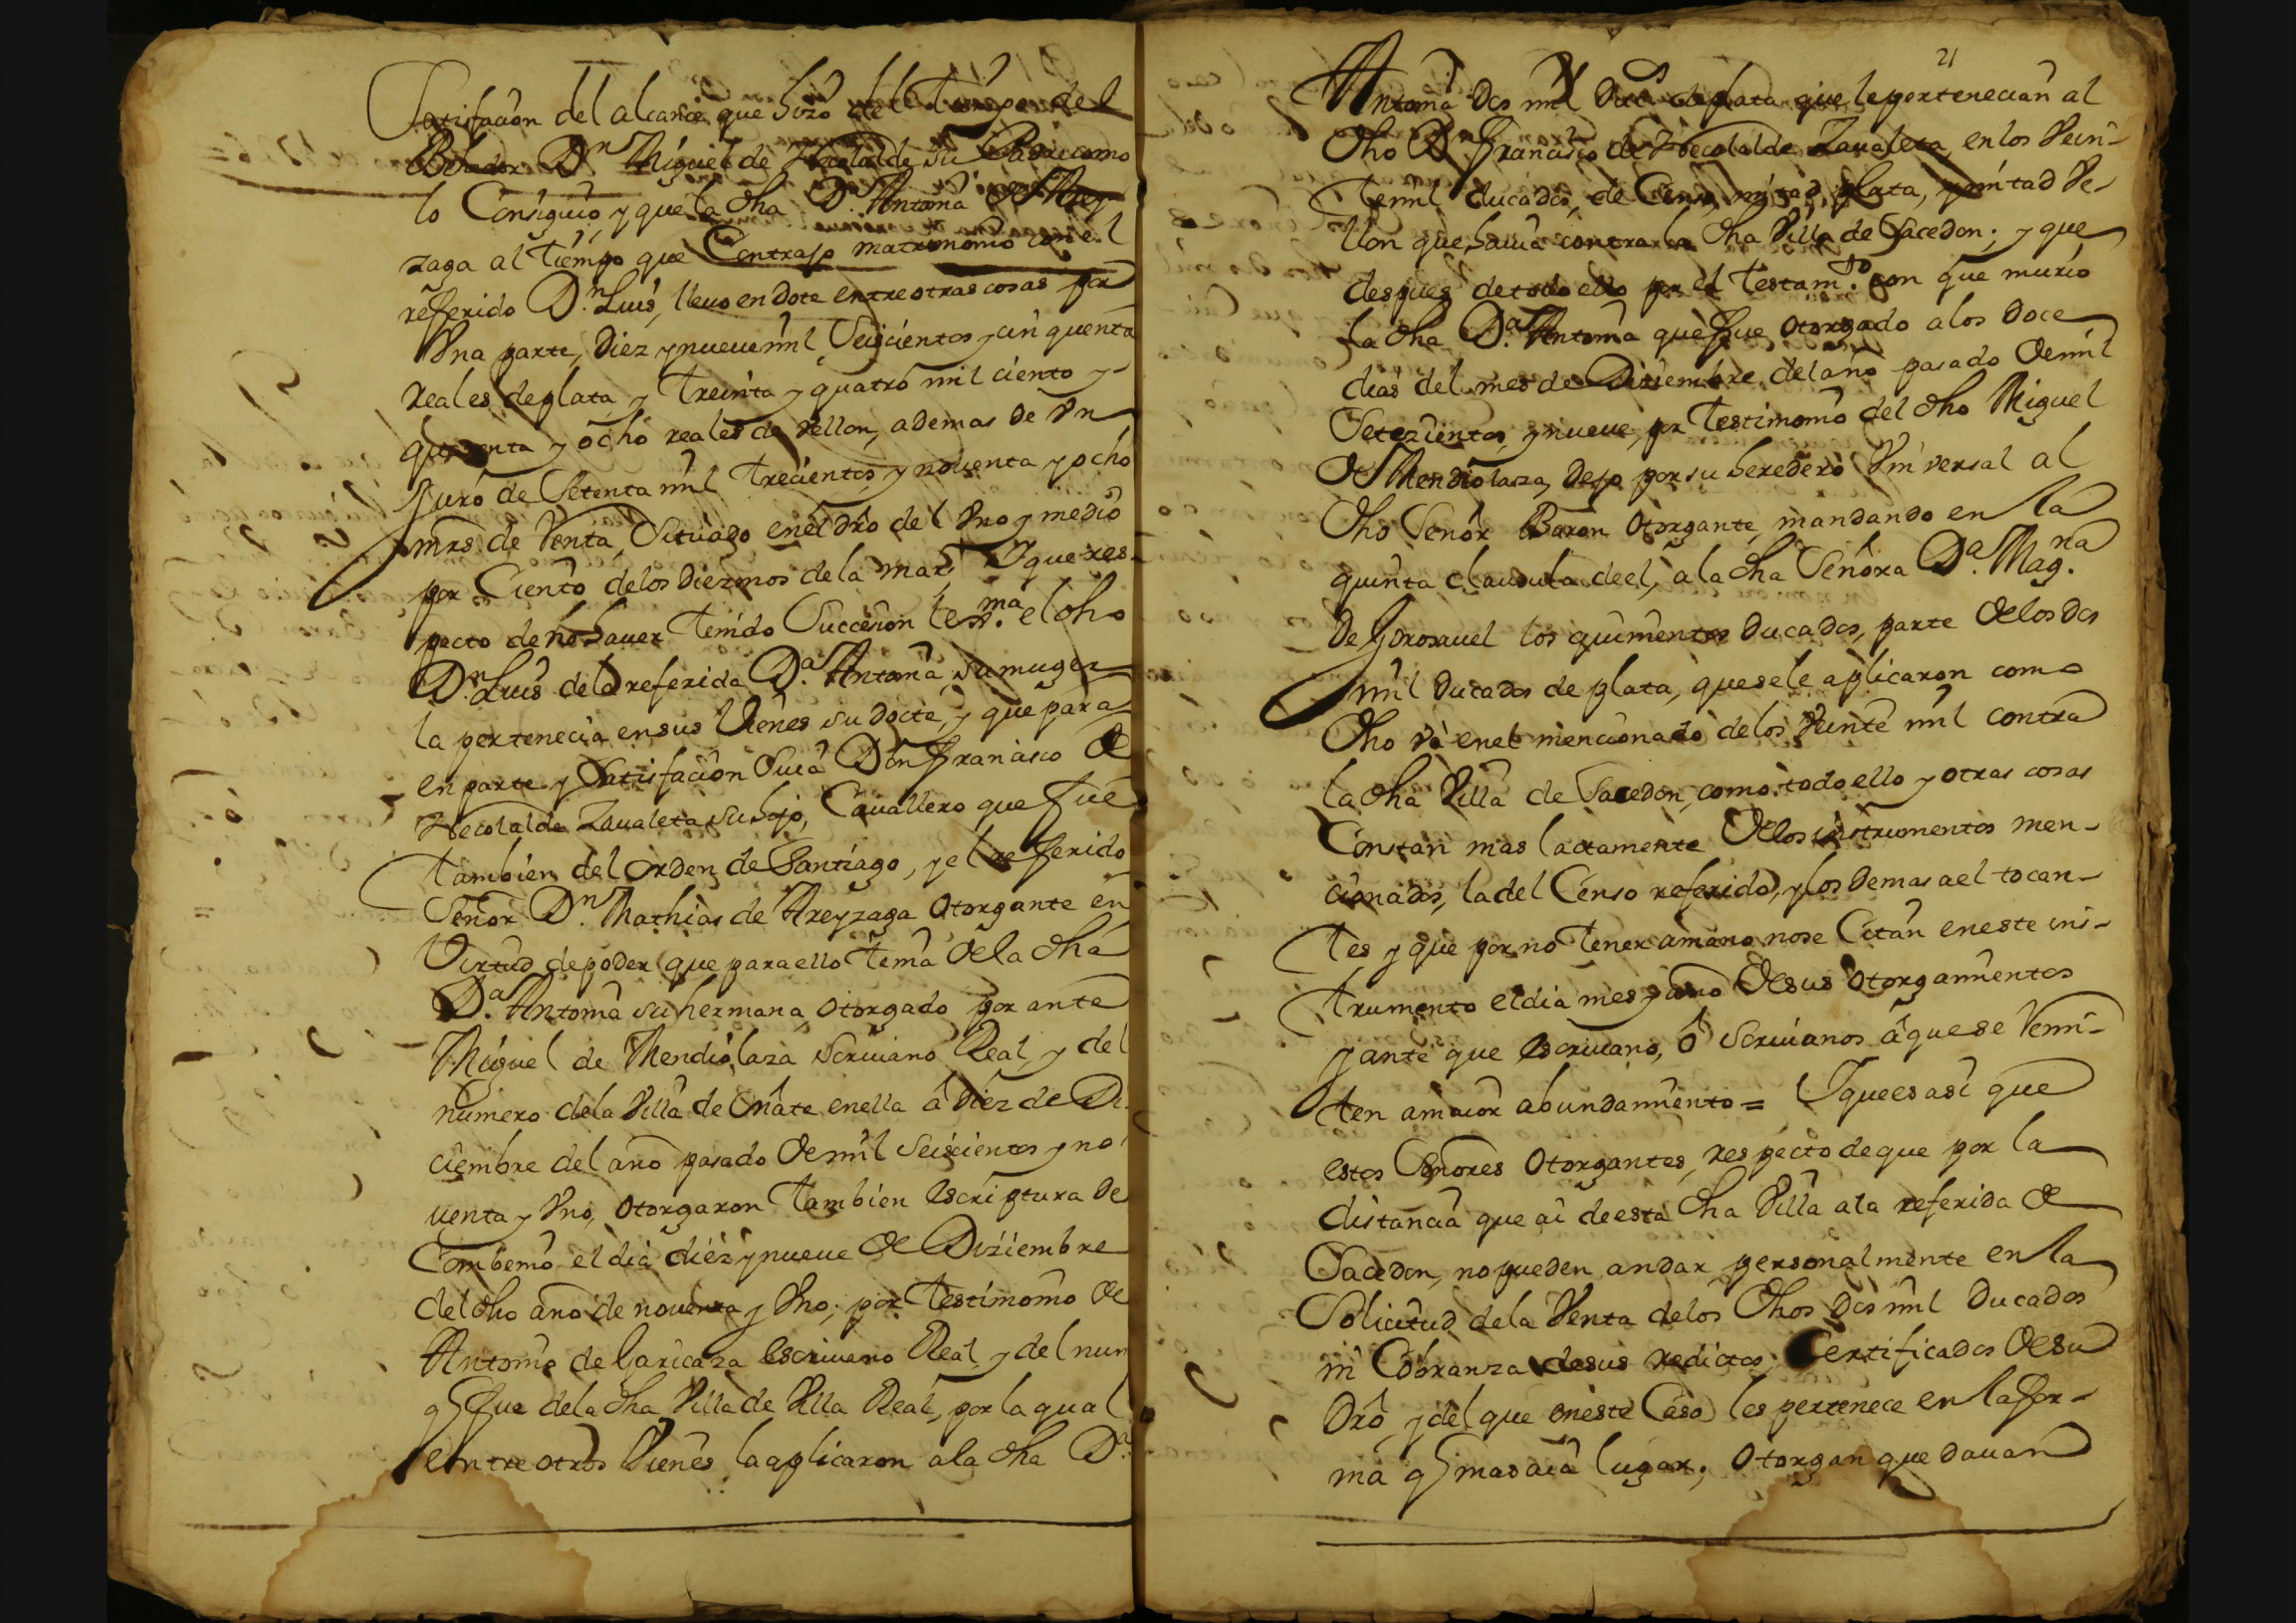 Satisfacion del alcance que hizo del tiempo del
Dn Miguel de Necolalde su Padre como
lo Consiguio, y que la dha Da. Antonia de Arey
zaga al tiempo que Contrajo matrimonio con el
referido Dn. Luis, lleuo en dote entre otras cosas por
Vna parte, Diez y nueue mil Seiscientos y cinquenta
Reales de plata y treinta y quatro mil ciento y
quarenta y ocho reales de vellon, ademas de Vn
Juro de Setenta mil trecientos y nouenta y ocho
mrs de Renta Situado en el dro del Vno y medio
por Ciento de los Diezmos de la mar Y que res-
pecto de no hauer tenido Succesion legma. el dho
Dn. Luis de la referida Da. Antonia, su muger
la pertenecia en sus Vienes su docte, y que para
en parte y Satisfacion Suia Don Francisco de
Necolalde Zaualeta su hijo, Cauallero que fue
tambien del orden de Santiago, y el referido
Señor Dn. Mathias de Areyzaga Otorgante en
Virtud de poder que para ello tenia de la dha
Da. Antonia su hermana otorgado por ante
Miguel de Mendiolaza scriuano Real, y del
numero de la Villa de Oñate en ella â diez de Di
ciembre del año pasado de mil Seiscientos y no
uenta y Vno, otorgaron tambien escriptura de
Combenio el dia diez y nueue de Diziembre
del dho año de nouenta y Vno, por testimonio de
Antonio de Garicaza escriuano Real, y del num
q fue de la dha Villa de Villa Real, por la qual
entre otros Vienes la aplicaron a la dha Da.
21
Antonia Dos mil Ducs de plata que le pertenecian al
dho Dn Francisco de Necolalde Zaualeta, en los Vein-
te mil ducados, de Censo, mitad plata, y mitad Ve-
llon que hauia contra la dha Villa de Sacedon; y que
despues de todo ello por el testamto. con que murio
la dha Da. Antonia que fue otorgado a los doce
dias del mes de Diziembre del año pasado de mil
Setezientos, y nueue, por testimonio del dho Miguel
de Mendiolaza, dejo por su heredero Vniversal al
dho Señor Baron Otorgante, mandando en la
quinta clausula de el, a la dha Señora Da. Magna
de Gorosauel los quinientos Ducados, parte de los dos
mil Ducados de plata, que se le aplicaron como
dho va en el mencionado de los Veinte mil contra
la dha Villa de Sacedon, como todo ello y otras cosas
Constan mas lactamente de los instrumentos men-
cionados, la del Censo referido, y los demas a el tocan-
tes y que por no tener amano no se Citan en este ins-
trumento el dia mes y año de sus otorgamientos
y ante que escriuano, ô scriuanos â que se Remi-
ten a maior abundamiento = Y que es asi que
estos Señores Otorgantes, respecto de que por la
distancia que ai de esta dha Villa a la referida de
Sacedon, no pueden andar personalmente en la
Solicitud de la Venta de los dhos Dos mil Ducados
ni Cobranza de sus redictos; Certificados de su
Dro y del que en este Caso les pertenece en la for-
ma q mas aia lugar; Otorgan que dauan